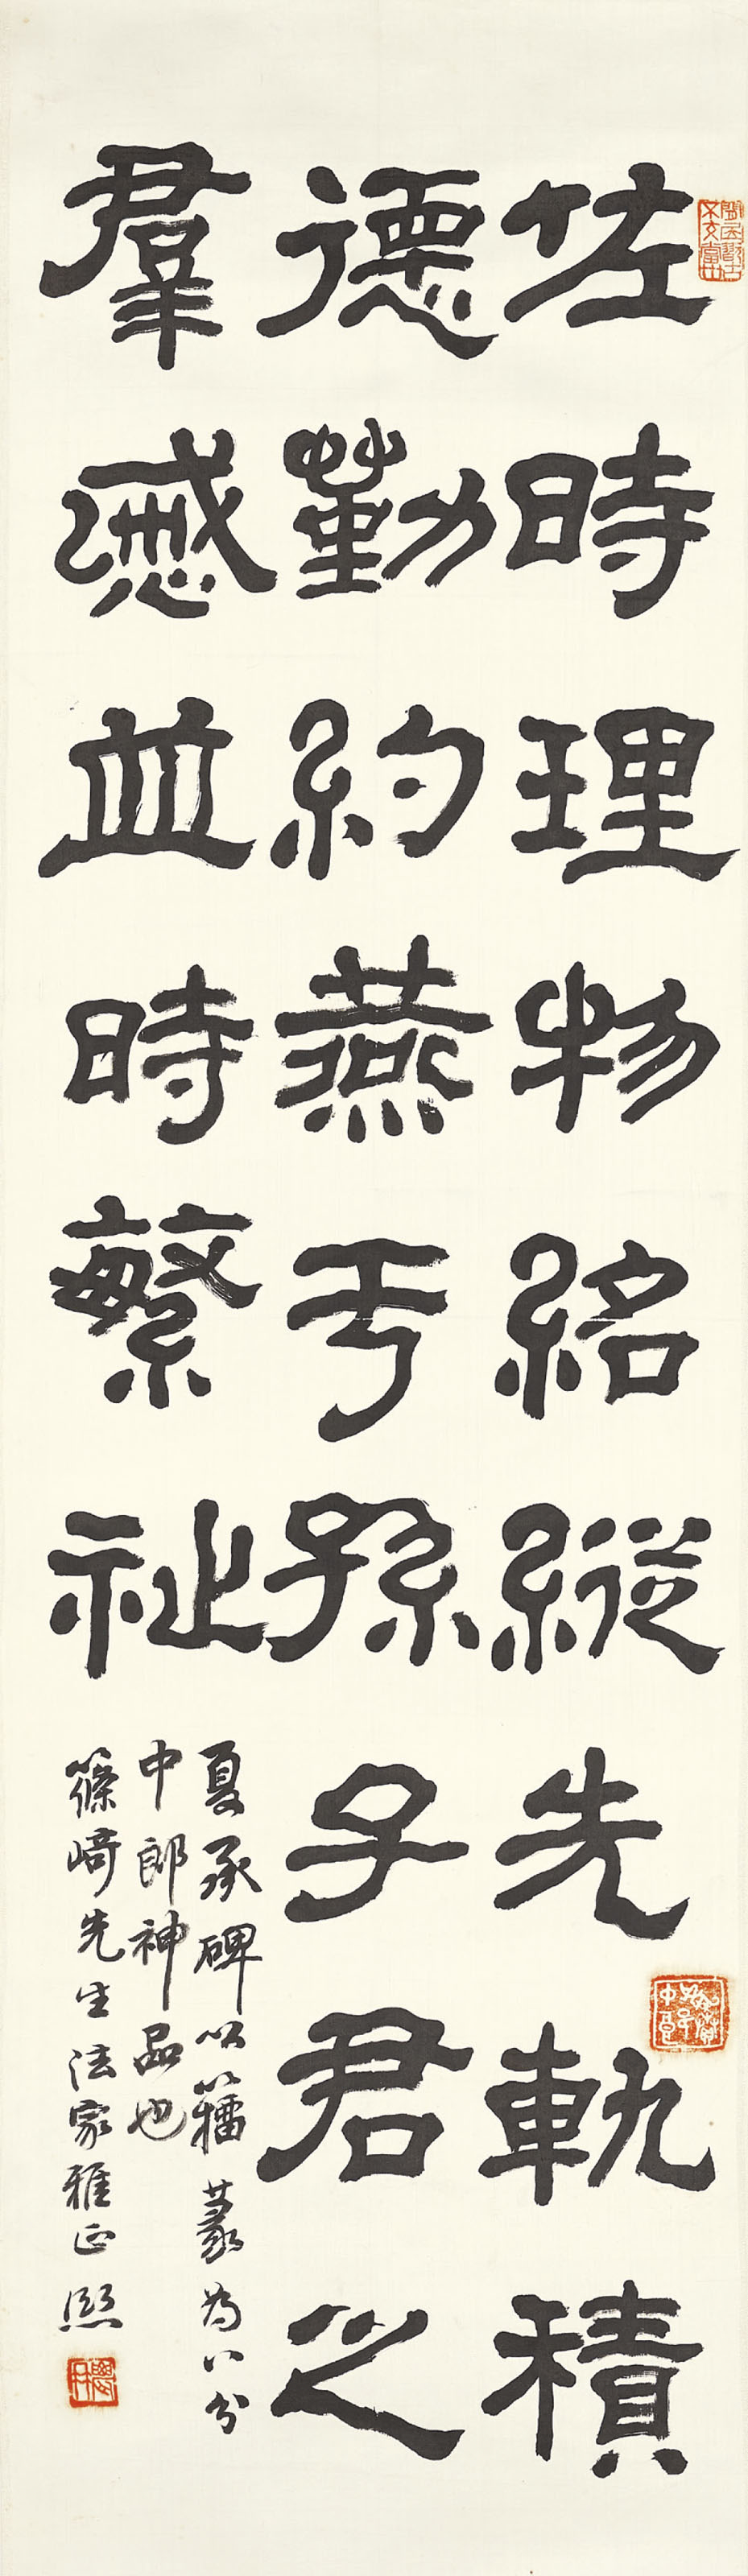 佐時理物紹縱先軌積
德勤約燕于孫子君之
羣慼並時繁祉
夏承碑以籀篆為八分
中郎神品也
篠﨑先生法家雅正熙